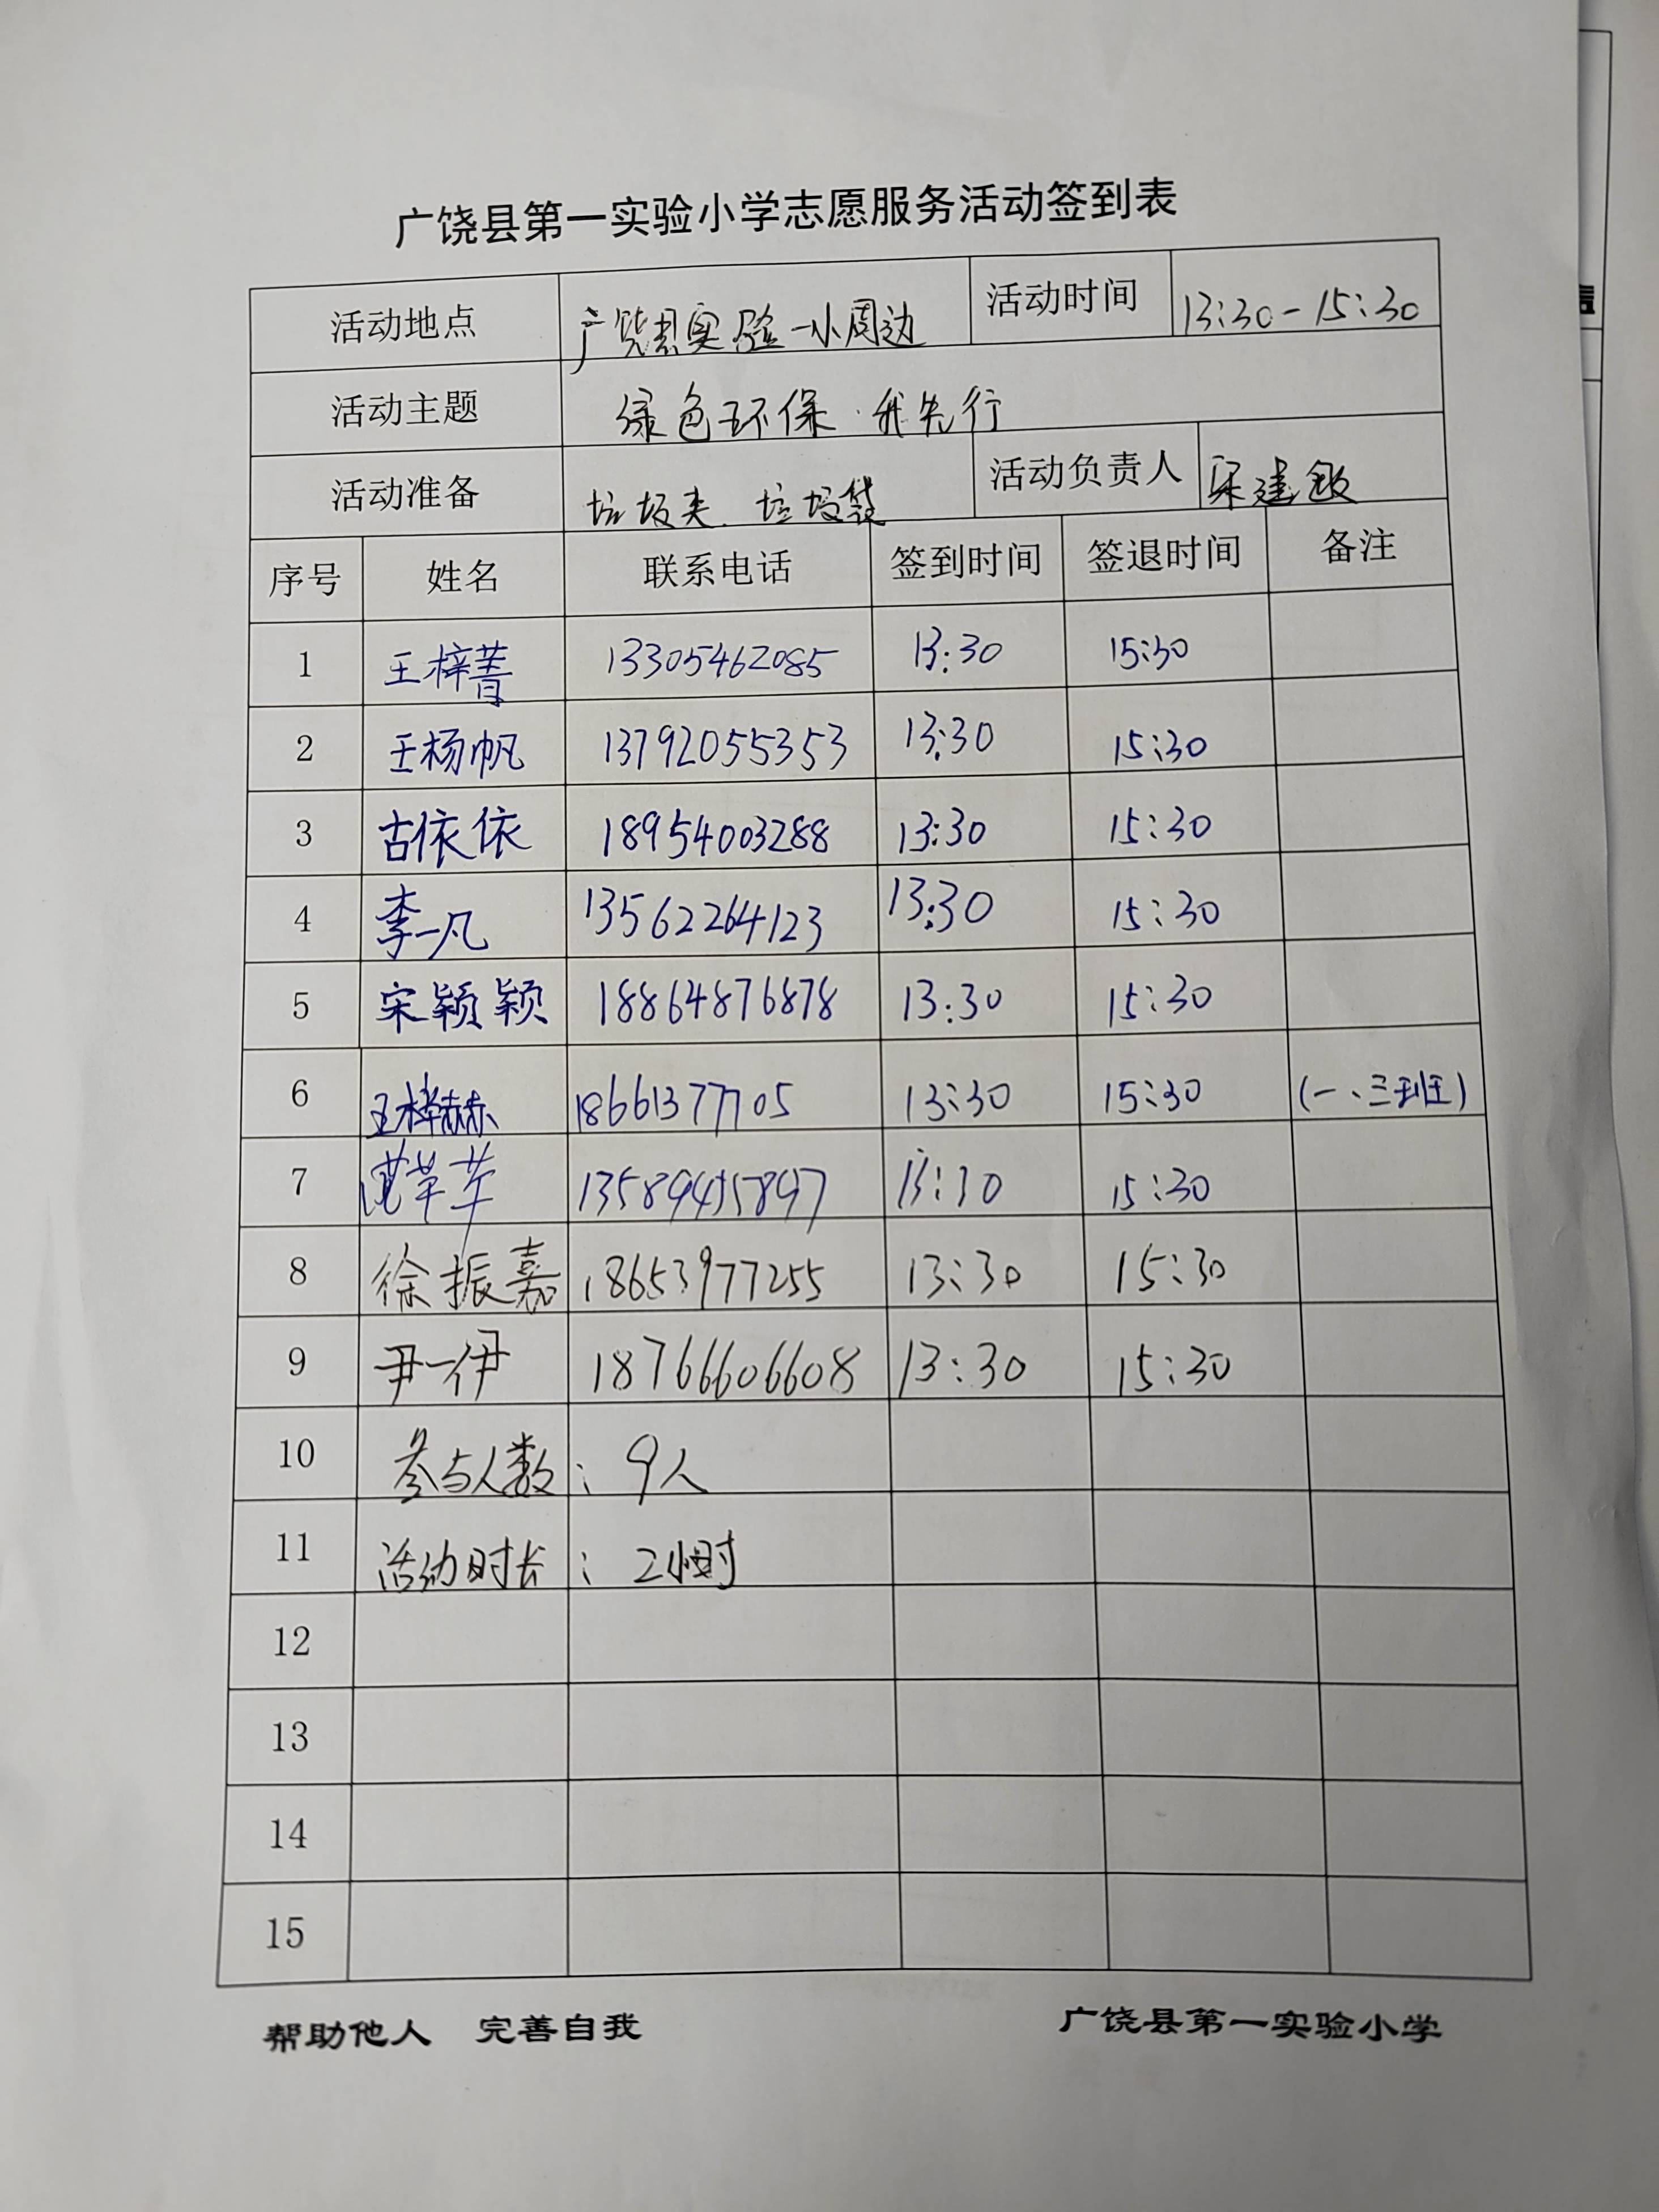 广饶县第一实验小学志愿服务活动签到表
活动地点 广饶县实验一小周边 活动时间 13:30-15:30
活动主题 绿色环保·我先行
活动准备 垃圾夹、垃圾袋 活动负责人 宋建敏
序号 姓名 联系电话 签到时间 签退时间 备注
1 王梓菁 13305462085 13:30 15:30
2 王杨帆 13792055353 13:30 15:30
3 古依依 18954003288 13:30 15:30
4 李一凡 13562264123 13:30 15:30
5 宋颖颖 18864876878 13:30 15:30
6 18661377705 13:30 15:30 (一、三班)
7 13:30 15:30
8 徐振嘉 18653977255 13:30 15:30
9 尹一伊 18766606608 13:30 15:30
10 参与人数: 9人
11 活动时长: 2小时
12
13
14
15
帮助他人 完善自我 广饶县第一实验小学